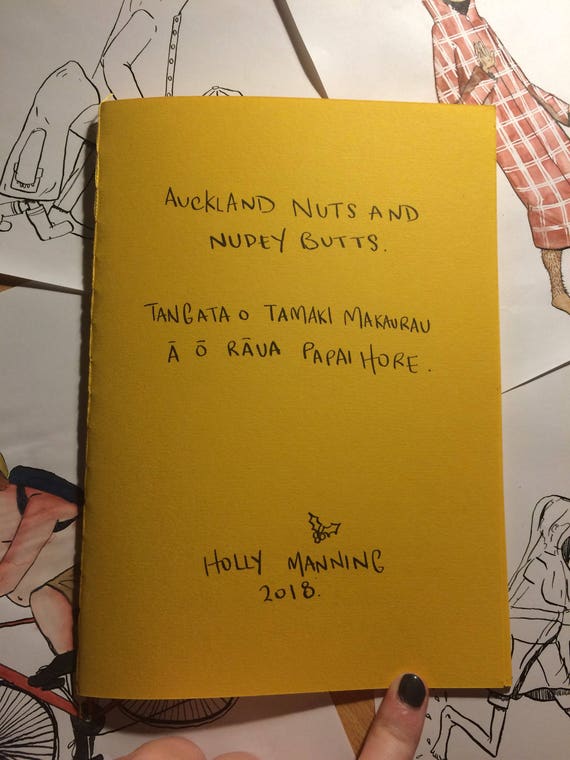 AUCKLAND NUTS AND
NUDEY BUTTS.
TANGATA O TAMAKI MAKAURAU
Ā Ō RĀUA PAPAI HORE.
HOLLY MANNING
2018.